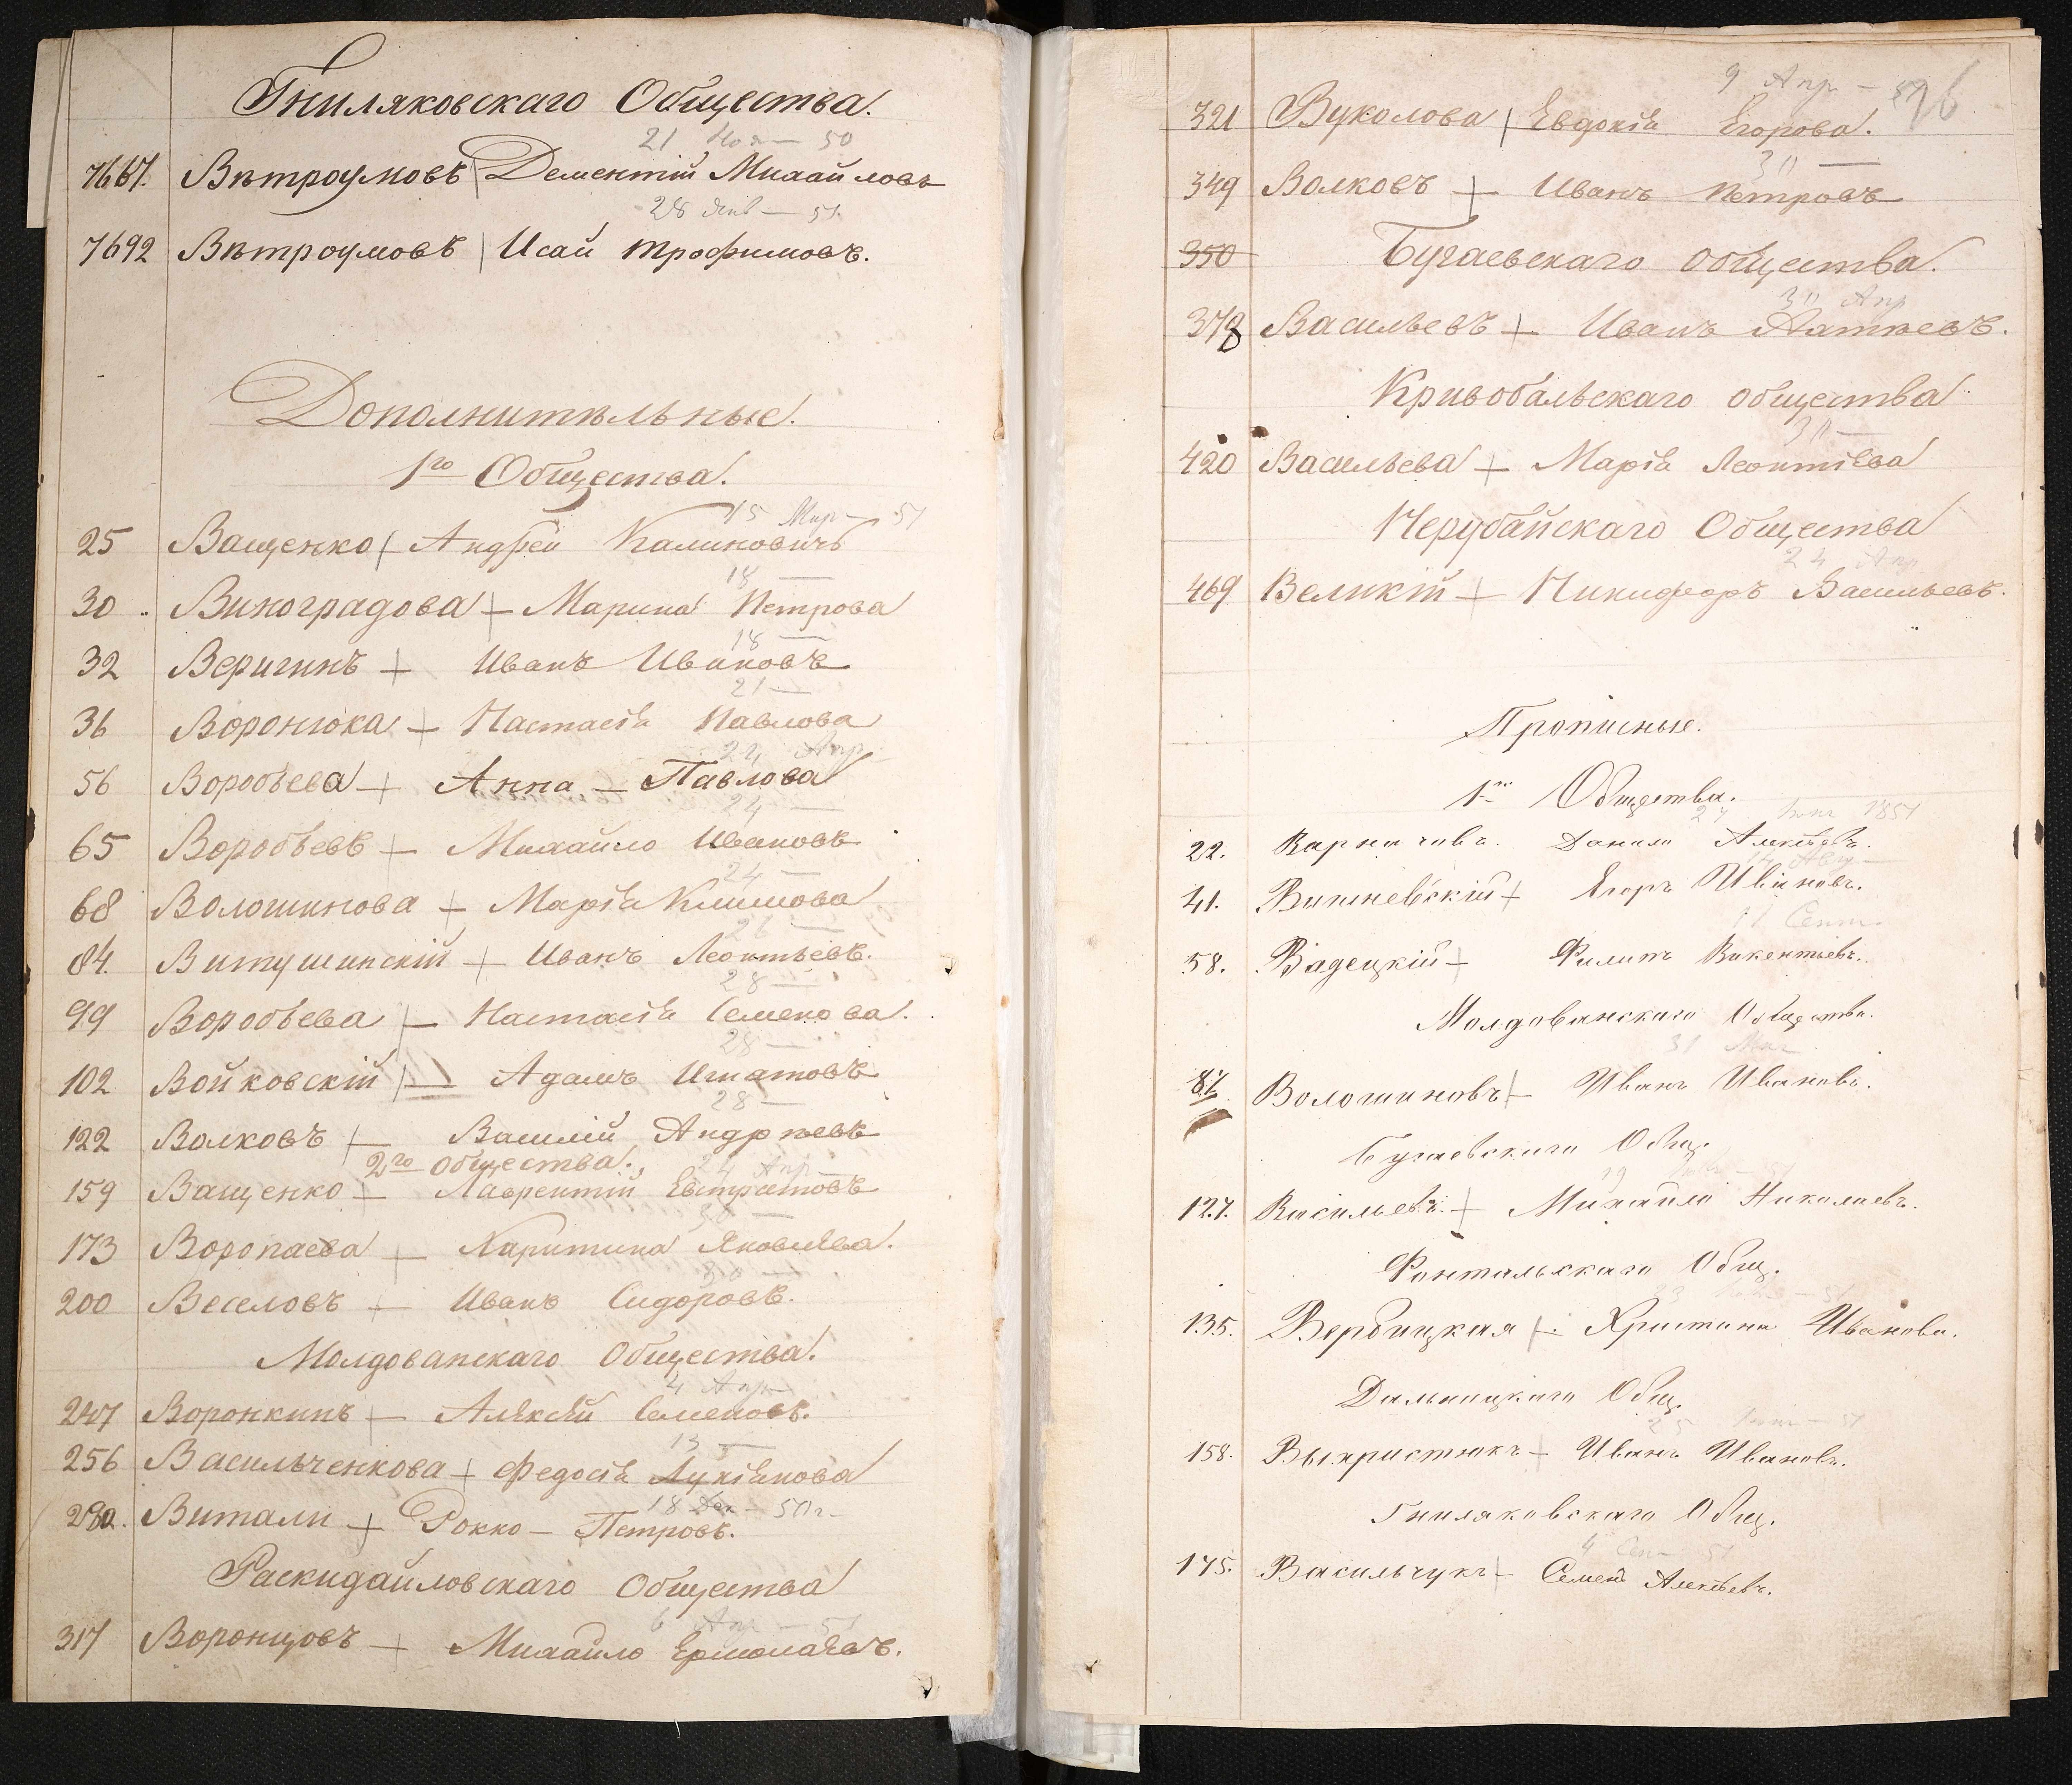 Гниляковскаго Общества.
21 Ноя — 50
7667. Вѣтроумовъ Дементій Михайловъ
28 Янв — 51.
7692 Вѣтроумовъ Исай Трофимовъ.
Дополнитѣльные.
1го Общества.
15 Мар — 51
25 Ващенко Андрей Калиновичъ
18 —
30 Виноградова — Марина Петрова
18 —
32 Веригинъ — Иванъ Ивановъ
21 —
36 Воронюка — Настасія Павлова
24 Апр
56 Воробьева — Анна — Павлова
24 —
65 Воробьевъ — Михайло Ивановъ
24 —
68 Волошинова — Марія Климова
26 —
84. Витушинскій — Иванъ Леонтьевъ.
28 —
99 Воробьева — Настасія Семенова.
28 —
102 Войковскій — Адамъ Игнатовъ
28 —
122 Волковъ — Василій Андрѣевъ
2го Общества.
24 Апр
159 Ващенко — Лаврентій Евстратовъ
30 —
173 Воропаева — Харитина Яковлѣва.
30 —
200 Веселовъ — Иванъ Сидоровъ.
Молдованскаго Общества.
4 Апр
247 Воронкинъ — Алѣксѣй Семеновъ.
13 —
256 Васильченкова — Федосія Лукіанова
18 Дек — 50 г.
280. Витали — Рокко — Петровъ.
Раскидайловскаго Общества
6 Апр — 51
317 Воронцовъ — Михайло Ермолаѣвъ.
9 Апр — 51
26
321 Вуколова Евдокія Егорова.
30 —
349 Волковъ — Иванъ Петровъ
350 Бугаевскаго Общества.
30 Апр
378 Васильевъ — Иванъ Матвѣевъ.
Кривобальскаго Общества
30 —
420 Васильева — Марія Леонтіева
Нерубайскаго Общества
24 Апр
469 Великій — Никифоръ Васильевъ.
Прописные.
1го Общества.
27 1851
22. Данило Алексѣевъ.
14 Авг —
41. Вишневскій — Егоръ Ивановъ.
11 Сент.
58. Вадецкій — Филипъ Викентьевъ.
Молдованскаго Общества.
31
87. Волошиновъ — Иванъ Ивановъ.
Бугаевскаго Общ.
19 — 51
127. Васильевъ. Михайло Николаевъ.
Фонтальскаго Общ.
23 — 51
135. Вербицкая — Христина Иванова.
Дальницкаго Общ.
25 — 51
158. Выхристюкъ — Иванъ Ивановъ.
Гниляковскаго Общ.
4 Сен — 51
175. Васильчукъ — Семенъ Алексѣевъ.